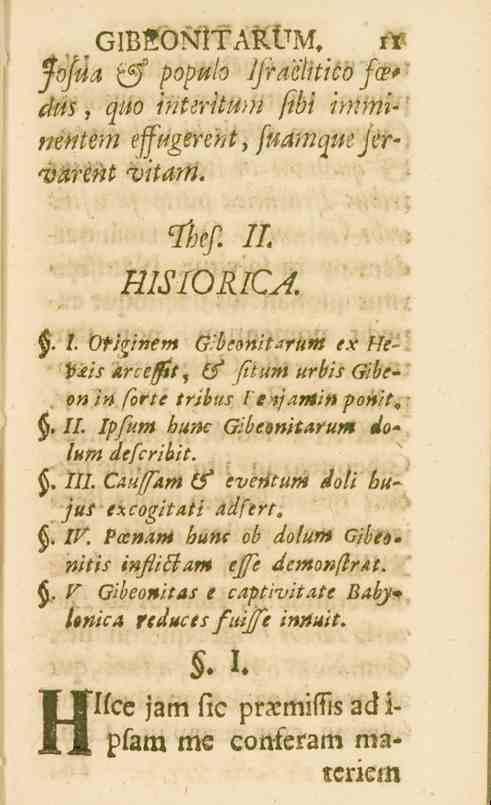 GIBEONITARUM. 11
Joſua & populo Iſraëlitico fœ-
dus, quo interitum ſibi immi-
nentem effugerent, ſuamque ſer-
varent vitam.
Theſ. II.
HISTORICA.
§. I. Originem Gibeonitarum ex He-
væis arceſſit, & ſitum urbis Gibe-
on in ſorte tribus Benjamin ponit.
§. II. Ipſum hunc Gibeonitarum do-
lum deſcribit.
§. III. Cauſſam & eventum doli hu-
jus excogitati adfert.
§. IV. Pœnam hunc ob dolum Gibeo-
nitis inflictam eſſe demonſtrat.
§. V Gibeonitas e captivitate Baby-
lonica reduces fuiſſe innuit.
§. I.
HIſce jam ſic præmiſſis ad i-
pſam me conferam ma-
teriem